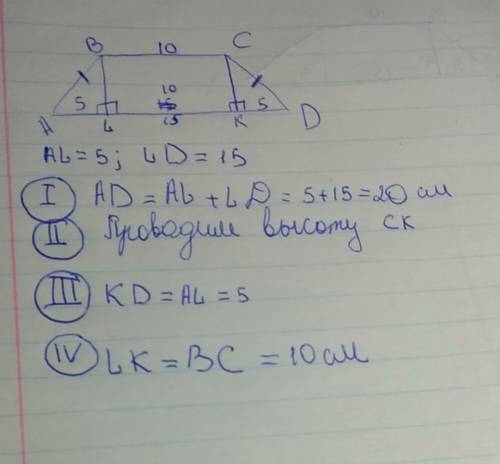 B 10 C
10
5 5
A L 15 K D
AL = 5; LD = 15
I AD = AL + LD = 5 + 15 = 20 см
II Проводим высоту CK
III KD = AL = 5
IV LK = BC = 10 см